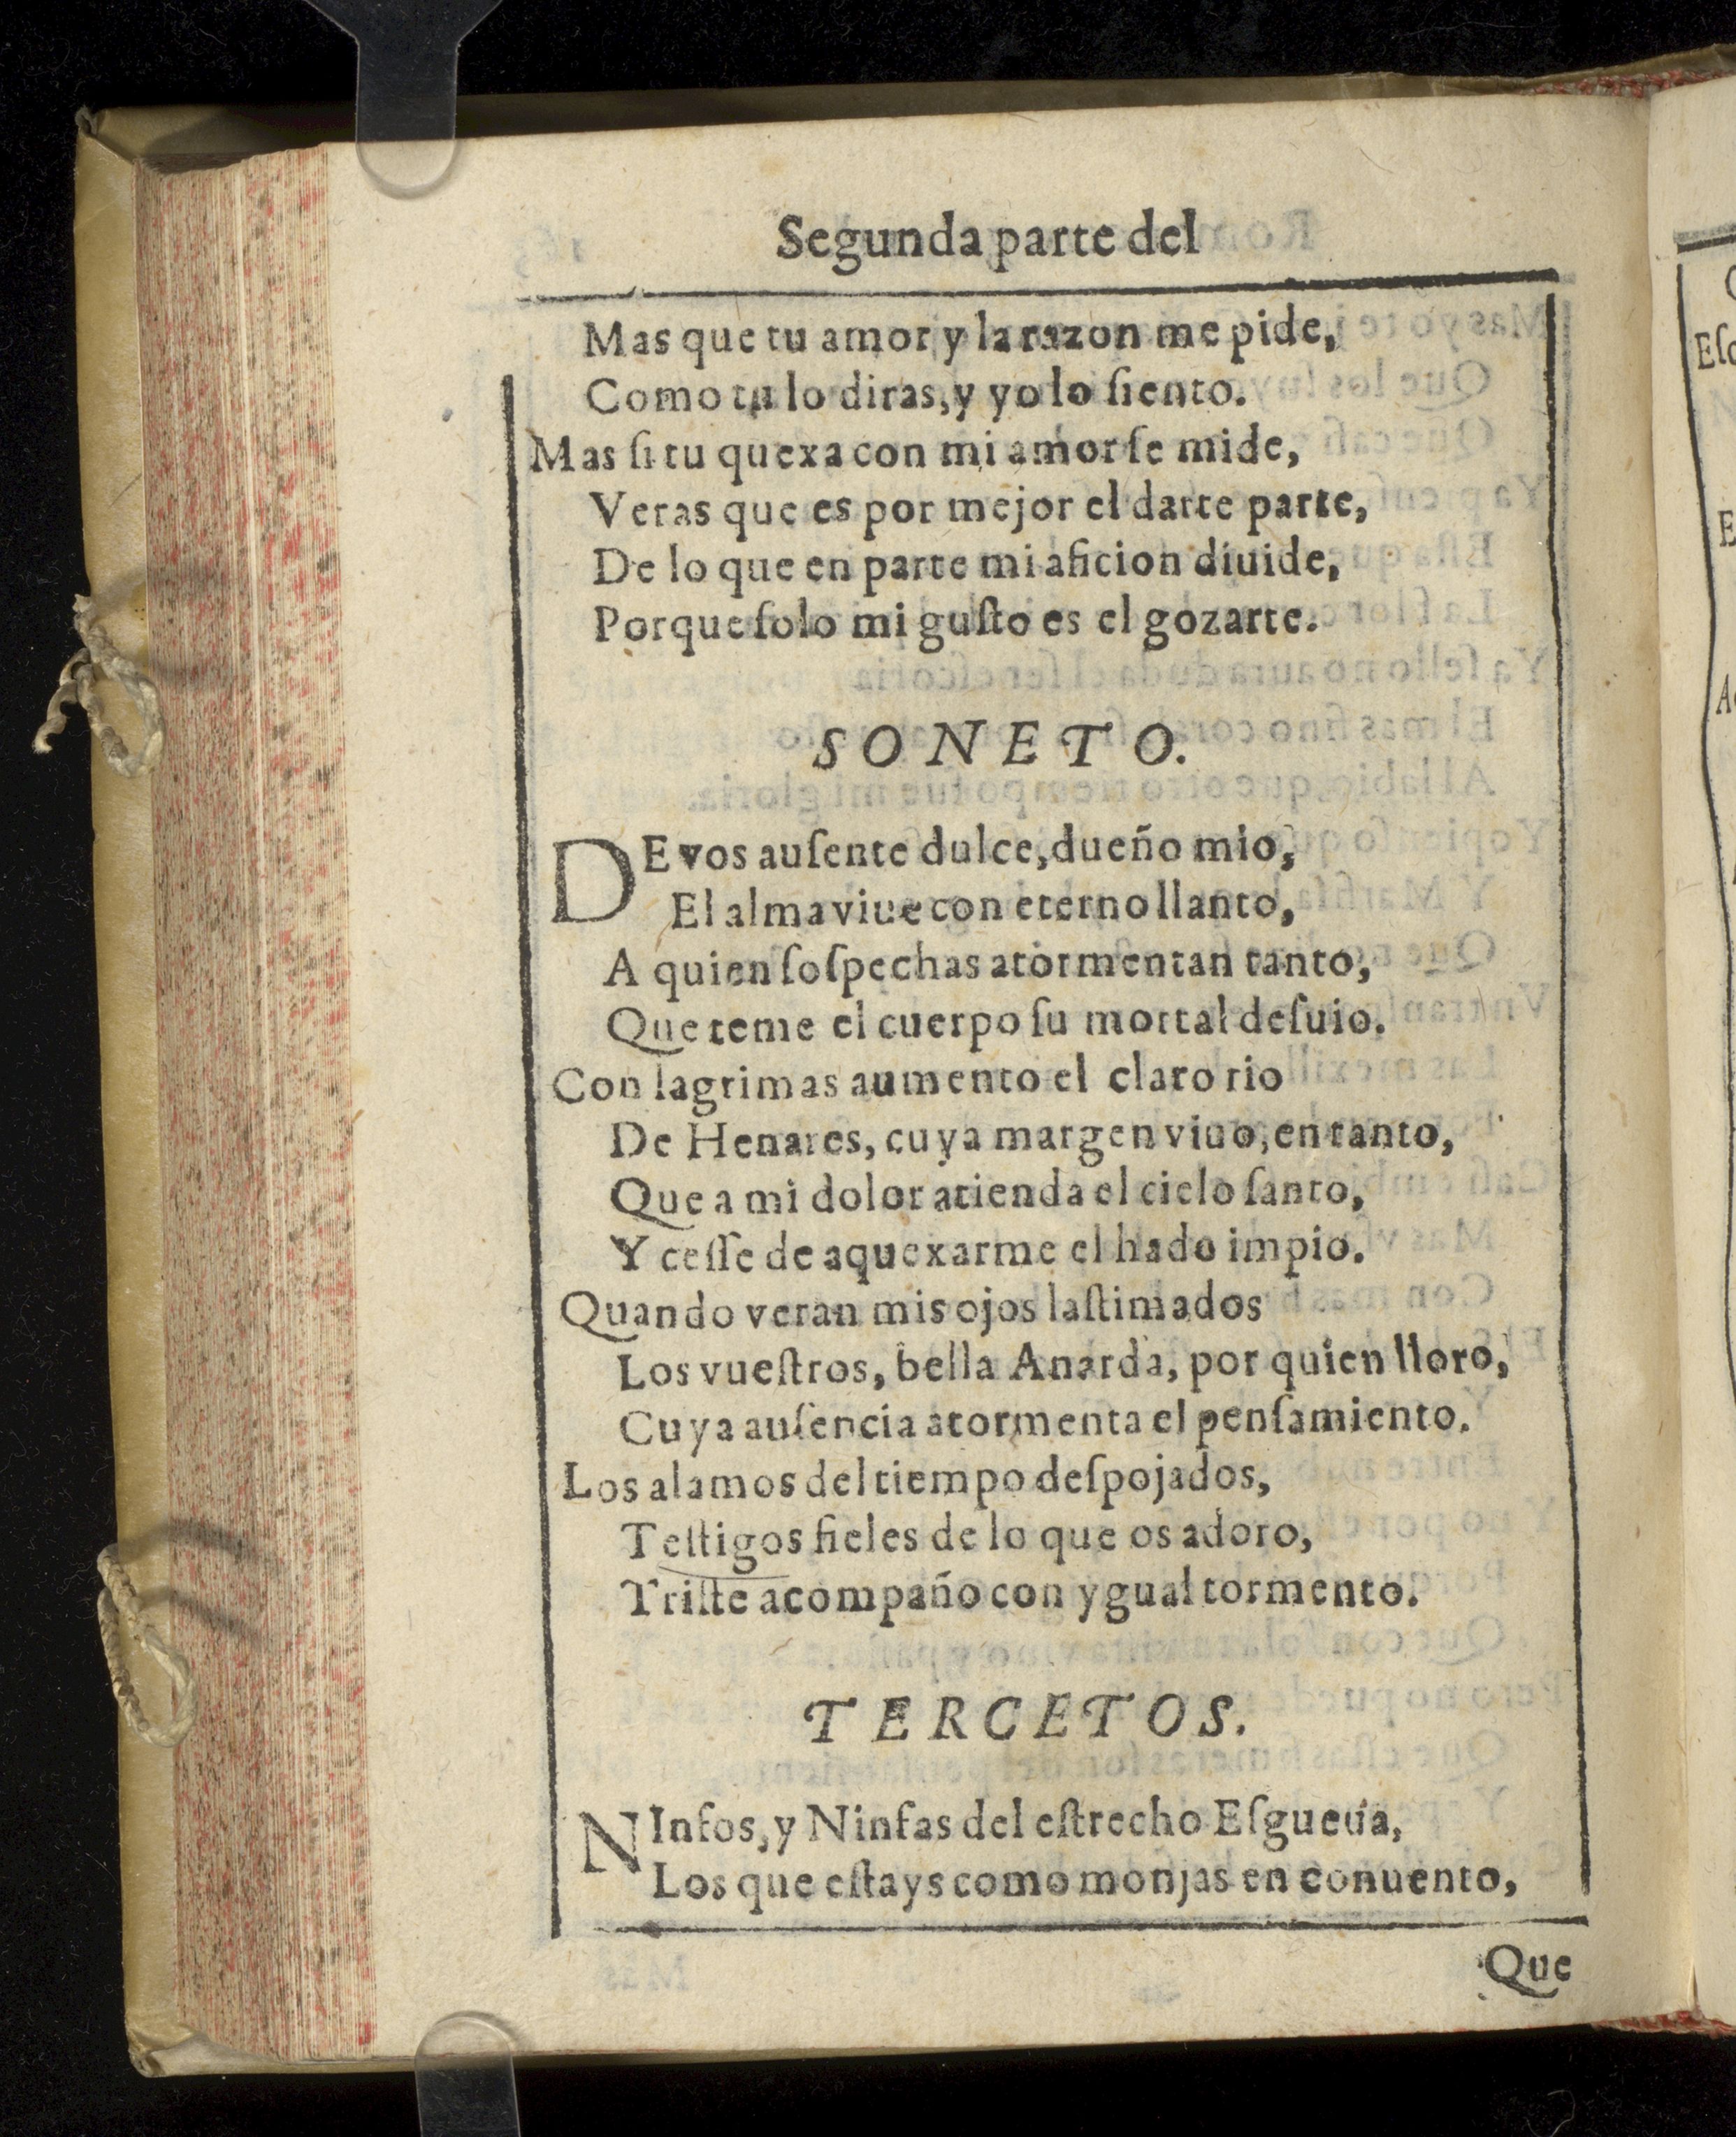 Segunda parte del
Mas que tu amor y la razon me pide,
Como tu lo diras, y yo lo ſiento.
Mas ſi tu quexa con mi amor ſe mide,
Veras que es por mejor el darte parte,
De lo que en parte mi aficion diuide,
Porque ſolo mi guſto es el gozarte.
SONETO.
DE vos auſente dulce, dueño mio,
El alma viue con eterno llanto,
A quien ſoſpechas atormentan tanto,
Que teme el cuerpo ſu mortal deſuio.
Con lagrimas aumento el claro rio
De Henares, cuya margen viuo, en tanto,
Que a mi dolor atienda el cielo ſanto,
Y ceſſe de aquexarme el hado impio.
Quando veran mis ojos laſtimados
Los vueſtros, bella Anarda, por quien lloro,
Cuya auſencia atormenta el penſamiento.
Los alamos del tiempo deſpojados,
Teſtigos fieles de lo que os adoro,
Triſte acompaño con ygual tormento.
TERCETOS.
NInfos, y Ninfas del eſtrecho Eſgueua,
Los que eſtays como monjas en conuento,
Que